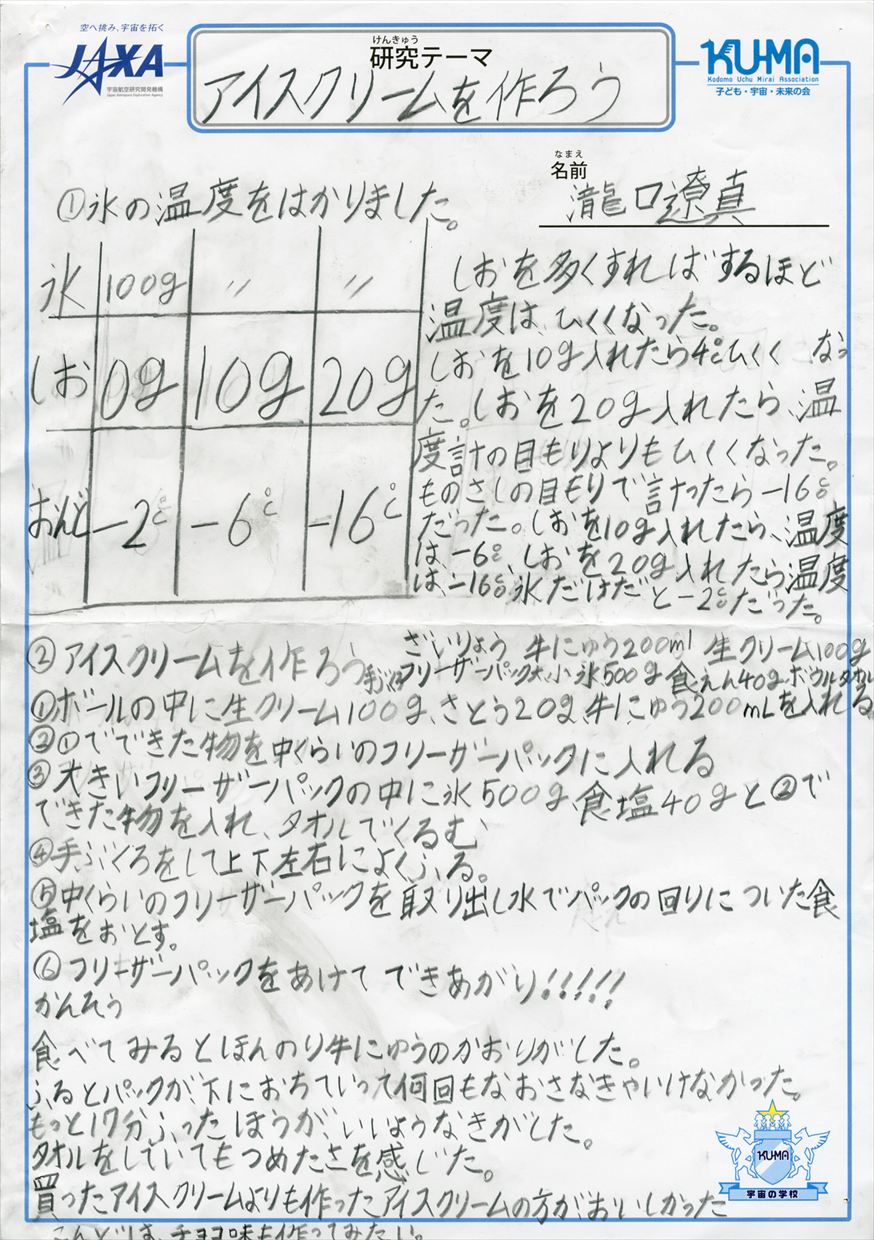 空へ挑み、宇宙を拓く
JAXA
宇宙航空研究開発機構
Japan Aerospace Exploration Agency
けんきゅう
研究テーマ
アイスクリームを作ろう
KU-MA
Kodomo Uchu Mirai Association
子ども・宇宙・未来の会
なまえ
名前
瀧口遼真
①氷の温度をはかりました。
氷 100g 〃 〃
しお 0g 10g 20g
おんど -2℃ -6℃ -16℃
しおを多くすればするほど
温度は、ひくくなった。
しおを10g入れたら4℃ひくく なっ
た。しおを20g入れたら、温
度計の目もりよりもひくくなった。
ものさしの目もりで計ったら-16℃
だった。しおを10g入れたら、温度
は、-6℃、しおを20g入れたら温度
は、-16℃氷だけだと-2℃だった。
②アイスクリームを作ろう
ざいりょう 牛にゅう200ml 生クリーム100g
手ぶくろ フリーザーパック大、小 氷500g 食えん40g ボウル タオル
①ボールの中に生クリーム100g、さとう20g、牛にゅう200mLを入れる
②①でできた物を中くらいのフリーザーパックに入れる
③大きいフリーザーパックの中に氷500g、食塩40gと②で
できた物を入れ、タオルでくるむ
④手ぶくろをして上下左右によくふる。
⑤中くらいのフリーザーパックを取り出し水でパックの回りについた食
塩をおとす。
⑥フリーザーパックをあけてできあがり!!!!!
かんそう
食べてみるとほんのり牛にゅうのかおりがした。
ふるとパックが、下におちていって何回もなおさなきゃいけなかった。
もっと17分ふったほうが、いいようなきがした。
タオルをしていてもつめたさを感じた。
買ったアイスクリームよりも作ったアイスクリームの方がおいしかった
こんどは、チョコ味も作ってみたい。
KU-MA
宇宙の学校